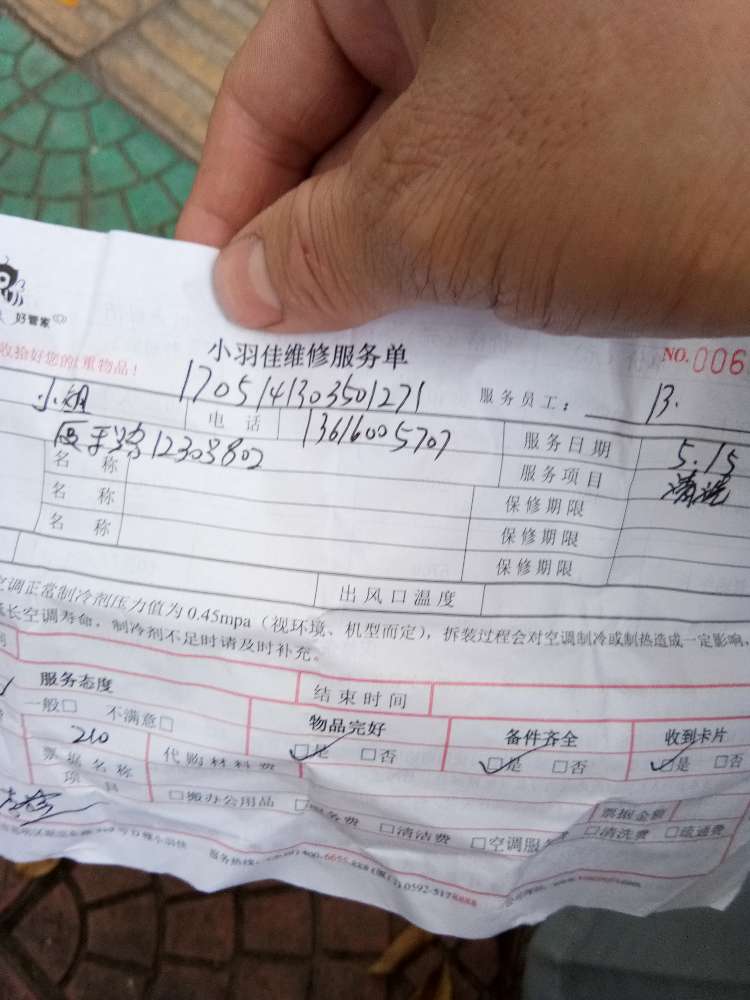 好管家
收验好您的贵重物品！
小羽佳维修服务单
NO.006
1705141303501271
服务员工：
13.
小姐
电话
13616005707
服务日期
5.15
12303802
名称
服务项目
清洗
名称
保修期限
名称
保修期限
保修期限
出风口温度
空调正常制冷剂压力值为0.45mpa（视环境、机型而定），拆装过程会对空调制冷或制热造成一定影响，
长空调寿命，制冷剂不足时请及时补充。
服务态度
结束时间
一般□ 不满意□
物品完好
备件齐全
收到卡片
□是 □否
□是 □否
□是 □否
210
代购材料费
票据名称
项目
票据金额
□搬办公用品 □服务费 □清洁费 □空调服 □清洗费 □疏通费
服务热线：400-6655-xxx(厦门)0592-517